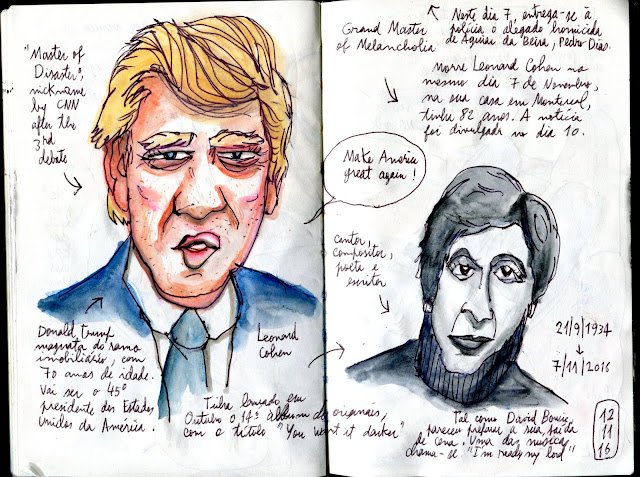 "Master of
Disaster",
nickname
by CNN
after the
3rd
debate
Donald Trump
magnata do ramo
imobiliário, com
70 anos de idade.
Vai ser o 45º
presidente dos Estados
Unidos da América.
Leonard
Cohen
Tinha lançado em
Outubro o 14º álbum de originais,
com o título "You want it darker"
Grand Master
of Melancholia
Neste dia 7, entrega-se à
polícia o alegado homicida
de Aguiar da Beira, Pedro Dias.
Morre Leonard Cohen no
mesmo dia 7 de Novembro,
na sua casa em Montereal,
tinha 82 anos. A notícia
foi divulgada no dia 10.
Make America
great again!
cantor,
compositor,
poeta e
escritor
21/9/1934
7/11/2016
Tal como David Bowie,
pareceu preparar a sua saída
de cena. Uma das músicas
chama-se "I'm ready my lord"
12
11
16